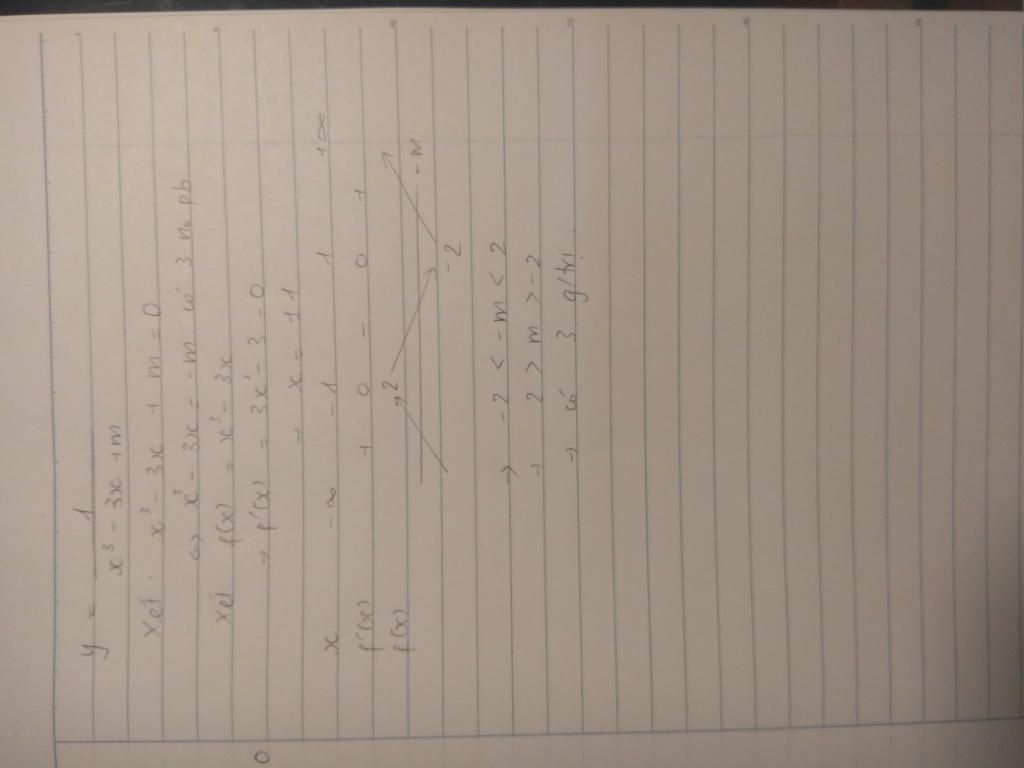 y = 1 / (x³ - 3x + m)
Xét: x³ - 3x + m = 0
<=> x³ - 3x = -m có 3 no pb
Xét f(x) = x³ - 3x
→ f'(x) = 3x² - 3 = 0
→ x = ±1
x -∞ -1 1 +∞
f'(x) + 0 - 0 +
f(x) 2 -2 -m
→ -2 < -m < 2
→ 2 > m > -2
→ có 3 g/trị.
0